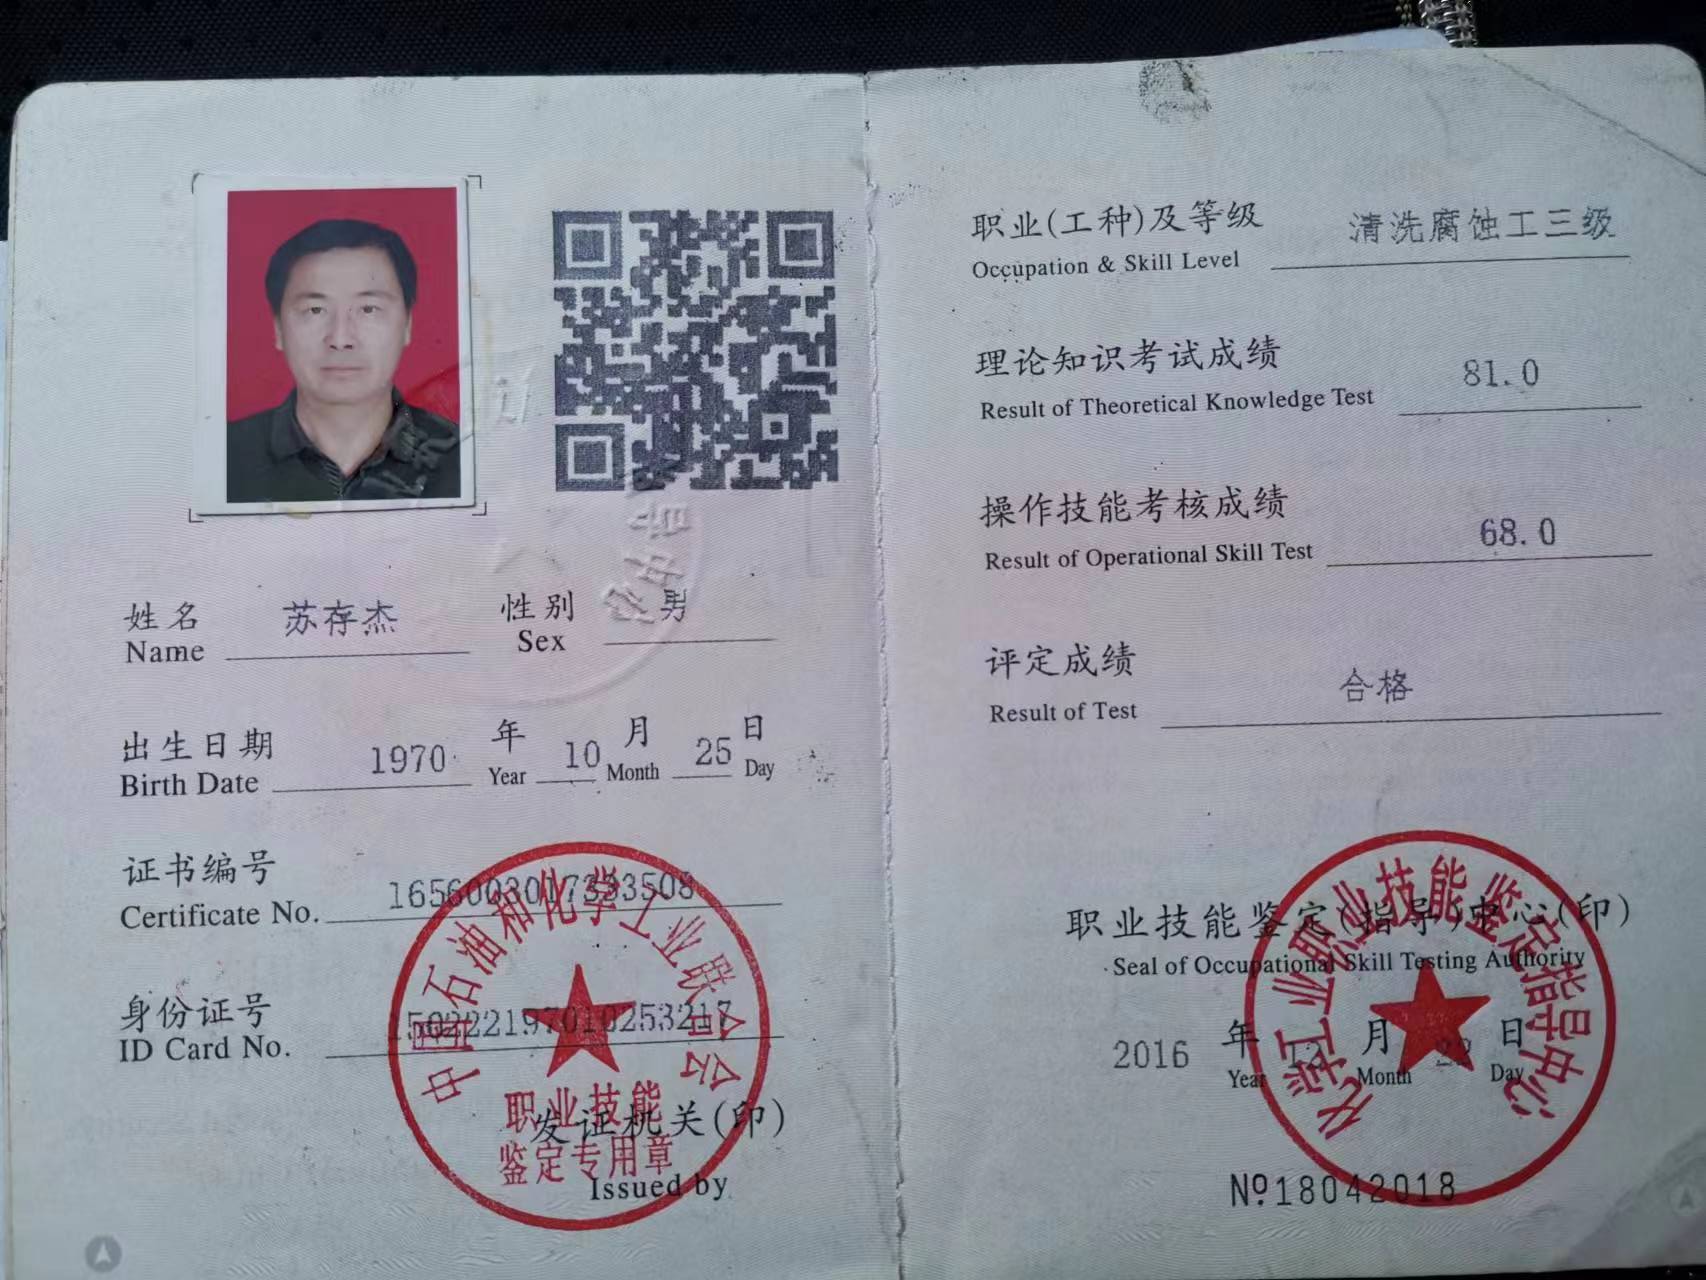 姓名 苏存杰 性别 男
Name Sex
出生日期 1970 年 10 月 25 日
Birth Date Year Month Day
证书编号 1656003017333508
Certificate No.
身份证号 150222197010253217
ID Card No.
发证机关(印)
Issued by
中国石油和化学工业联合会
职业技能
鉴定专用章
职业(工种)及等级 清洗腐蚀工三级
Occupation & Skill Level
理论知识考试成绩 81.0
Result of Theoretical Knowledge Test
操作技能考核成绩 68.0
Result of Operational Skill Test
评定成绩 合格
Result of Test
职业技能鉴定(指导)中心(印)
Seal of Occupational Skill Testing Authority
2016 年 12 月 日
Year Month Day
化学工业职业技能鉴定指导中心
№18042018